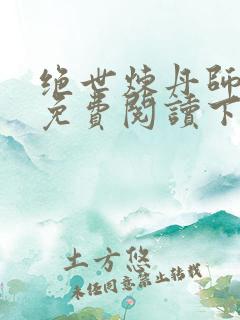 绝世炼丹师
免費閱讀下
土方悠
未经同意禁止转载